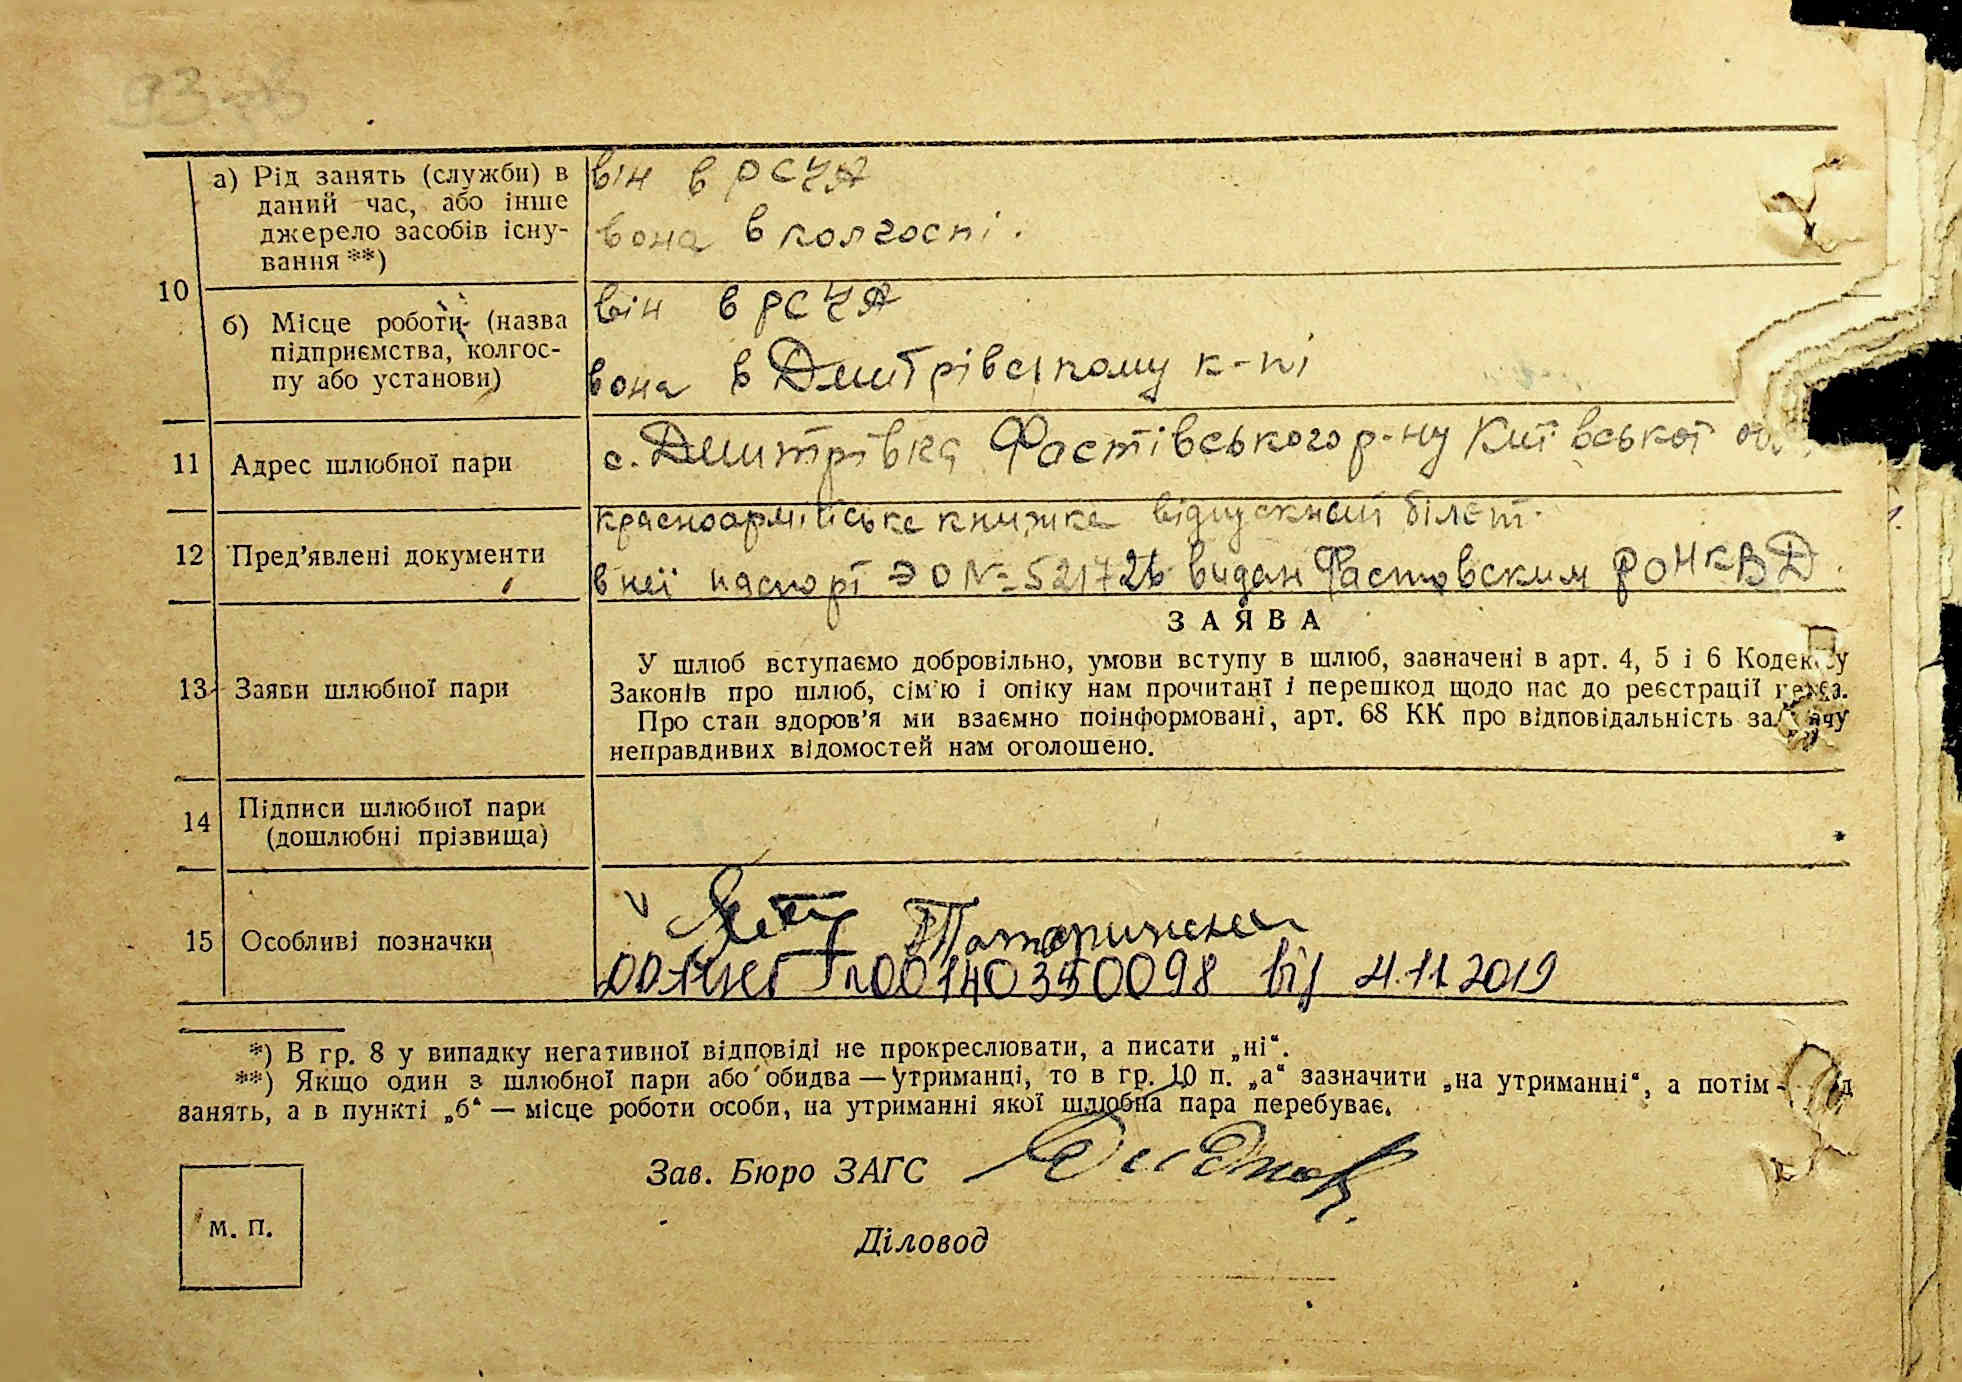 93 зв
10
а) Рід занять (служби) в
даний час, або інше
джерело засобів існу-
вання **)
він в РСЧА
вона в колгоспі.
б) Місце роботи (назва
підприємства, колгос-
пу або установи)
він в РСЧА
вона в Дмитрівському к-пі
11 Адрес шлюбної пари
с. Дмитрівка Фастівського р-ну Київської
12 Пред'явлені документи
красноармійська книжка відпускний білет.
в неї паспорт ЭО № 521726 видан Фастовским РОНКВД.
13 Заяви шлюбної пари
ЗАЯВА
У шлюб вступаємо добровільно, умови вступу в шлюб, зазначені в арт. 4, 5 і 6 Кодексу
Законів про шлюб, сім'ю і опіку нам прочитані і перешкод щодо нас до реєстрації нема.
Про стан здоров'я ми взаємно поінформовані, арт. 68 КК про відповідальність за дачу
неправдивих відомостей нам оголошено.
14 Підписи шлюбної пари
(дошлюбні прізвища)
15 Особливі позначки
00140350098 від 4.11.2019
*) В гр. 8 у випадку негативної відповіді не прокреслювати, а писати „ні“.
**) Якщо один з шлюбної пари або обидва — утриманці, то в гр. 10 п. „а“ зазначити „на утриманні“, а потім -
занять, а в пункті „б“ — місце роботи особи, на утриманні якої шлюбна пара перебуває.
Зав. Бюро ЗАГС
М. П.
Діловод